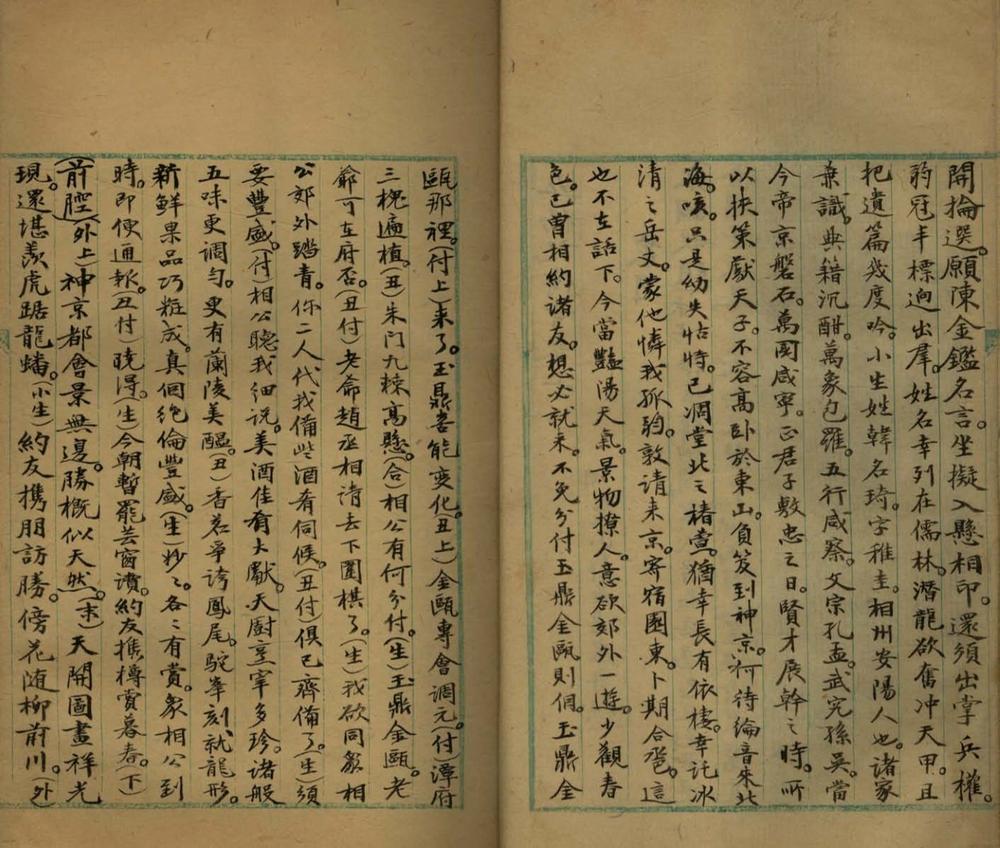 開掄選。願陳金鑑名言。坐擬入懸相印。還須出掌兵權。
豹冠丰標逈出羣。姓名幸列在儒林。潛龍欲奮冲天甲。且
把遺篇幾度吟。小生姓韓名琦。字稚圭。相州安陽人也。諸家
兼識。典籍沉酣。萬象包羅。五行咸察。文宗孔孟。武究孫吳。當
今帝京磐石。萬國咸寧。正君子敷忠之日。賢才展幹之時。所
以挾策獻天子。不容髙卧於東山。負笈到神京。何待綸音來北
海。咳。只是幼失怙恃。已凋堂北之椿萱。猶幸長有依棲。幸託冰
清之岳丈。蒙他憐我孤鸐。敦請来京。寄宿園東。卜期合巹。這
也不在話下。今當豔陽天氣。景物撩人。意欲郊外一遊。少觀春
色。已曾相約諸友。想必就来。不免分付玉鼎金甌則個。玉鼎金
甌那裡。(付上)来了。玉鼎善能變化。(丑上)金甌專會調元。(付)潭府
三槐遍植。(丑)朱门九棘髙懸。(合)相公有何分付。(生)玉鼎金甌。老
爺可在府否。(丑付)老爺趙丞相請去下圍棋了。(生)我欲同衆相
公郊外踏青。你二人代我備些酒肴伺候。(丑付)俱已齊備了。(生)須
要豐盛。(付)相公聽我細说。美酒佳肴大獻。天厨烹宰多珍。諸般
五味更調勻。更有蘭陵美醞。(丑)香茗爭誇鳳尾。駝峯刻就龍形。
新鮮果品巧粧成。真個絶倫豐盛。(生)妙〻。各〻有賞。衆相公到
時。即便通報。(丑付)曉得。(生)今朝暫罷芸窗讀。約友携樽賞暮春。(下)
(前腔)(外上)神京都會景無邊。勝概似天然。(末)天開圖畫祥光
現。還堪羨虎踞龍蟠。(小生)約友携朋訪勝。傍花随柳前川。(外